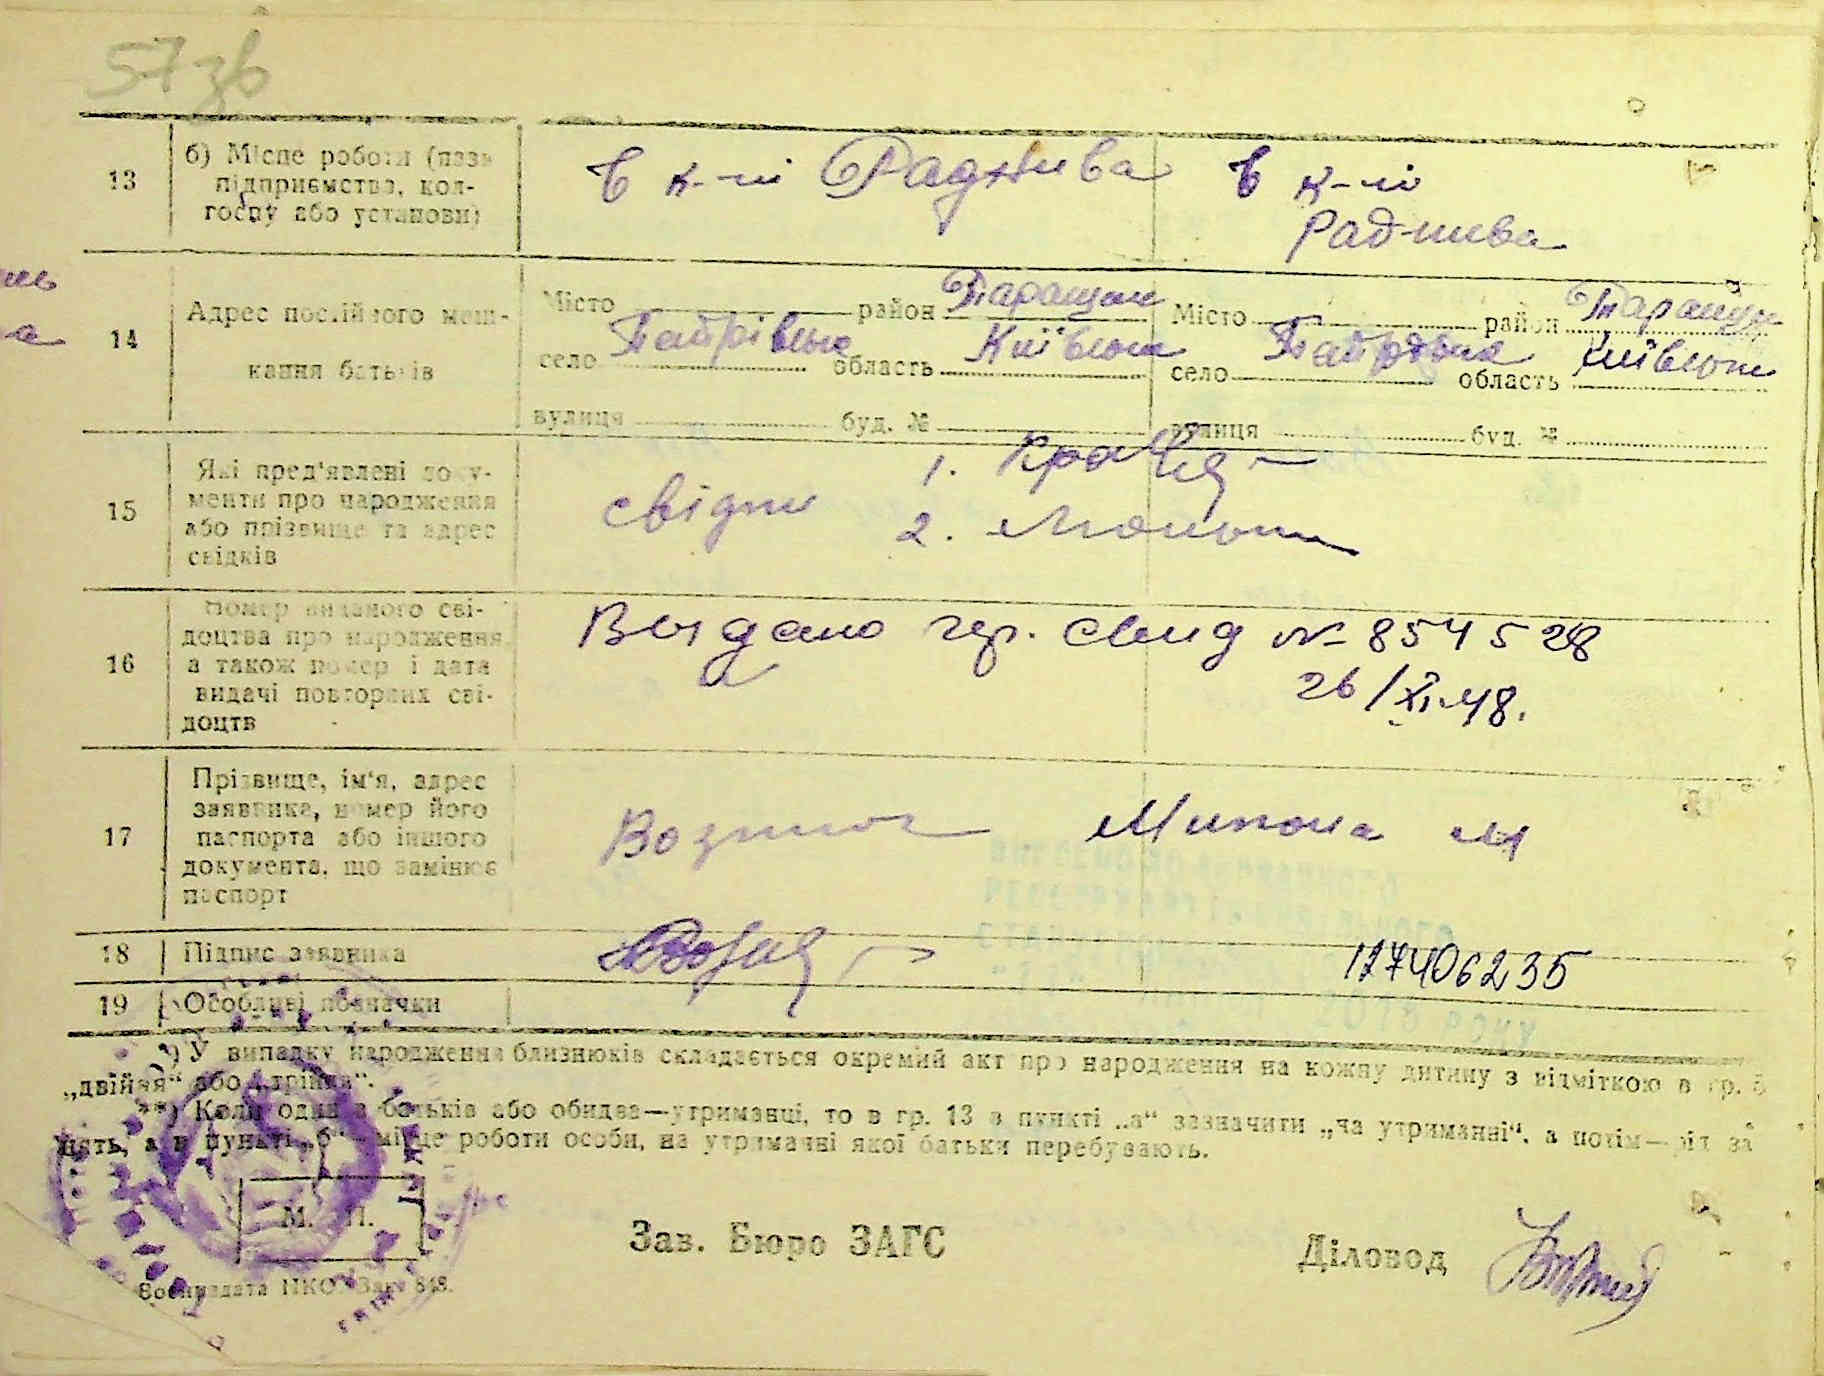 57 зв
13
б) Місце роботи (назв
підприємства, кол-
госпу або установи)
в к-пі Раднива
в к-пі
Раднива
14
Адрес постійного меш-
кання батьків
Місто район Таращан
село область Київськ
вулиця буд. №
Місто район Таращан
село область Київськ
вулиця буд. №
15
Які пред'явлені доку-
менти про народження
або прізвище та адрес
свідків
свідки
1. Кравец
2.
16
Номер виданого сві-
доцтва про народження
а також номер і дата
видачі повторних сві-
доцтв
Выдано свид № 854528
26/XI-48.
17
Прізвище, ім'я, адрес
заявника, номер його
паспорта або іншого
документа, що замінює
паспорт
Возник М
18
Підпис заявника
117406235
19
Особливі позначки
*) У випадку народження близнюків складається окремий акт про народження на кожну дитину з відміткою в гр. 5
„двійня“ або „трійня“.
**) Коли один з батьків або обидва—утриманці, то в гр. 13 в пункті „а“ зазначити „на утриманні“, а потім—рід за
нять, а в пункті „б“—місце роботи особи, на утриманні якої батьки перебувають.
М. П.
Зав. Бюро ЗАГС
Діловод
Воениздата НКО Зак. 848.